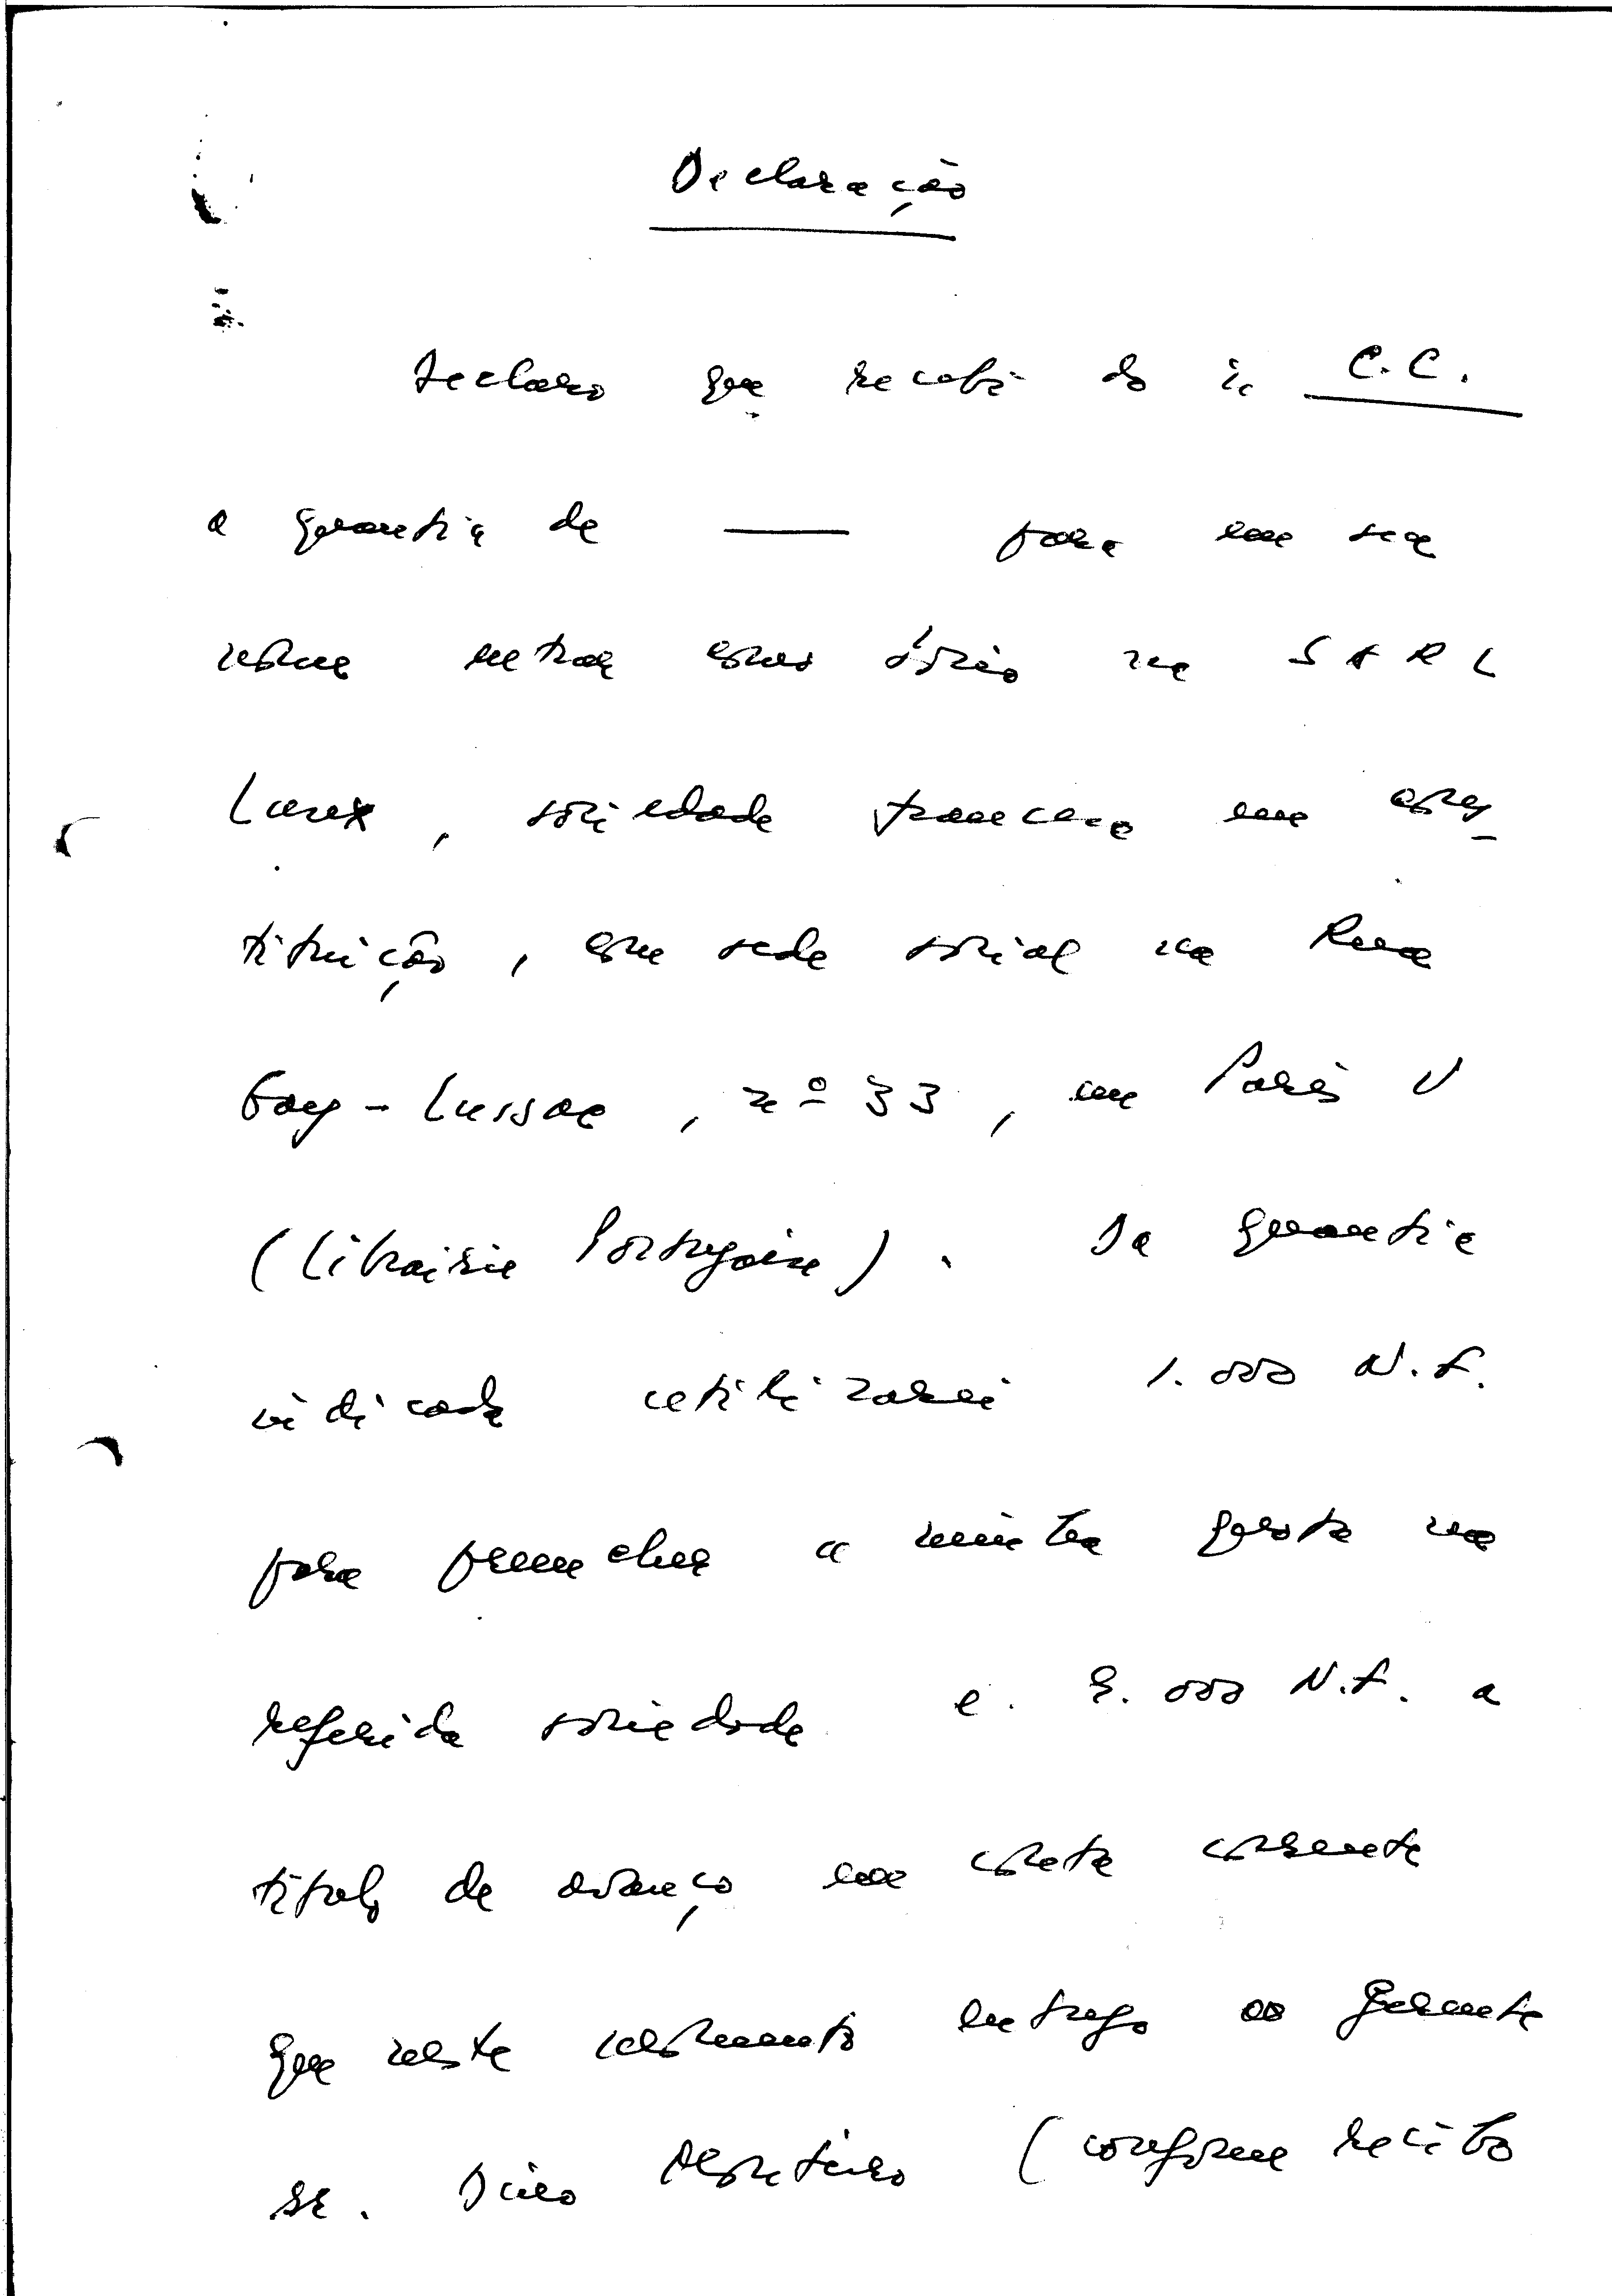 Declaração
Declaro que recebi do C.C.
a garantia de — para em seu
nome entrar como sócio na SARL
Lusex, sociedade francesa em cons-
tituição, com sede social na Rua
Gay-Lussac, nº 33, em Paris V
(Librairie Portugaise). Da garantia
indicada utilizarei 1.000 N.F.
para preencher a minha quota na
referida sociedade e 9.000 N.F. a
título de avanço em conta corrente
que neste momento entrego ao gerente
sr. Monteiro (conforme recibo